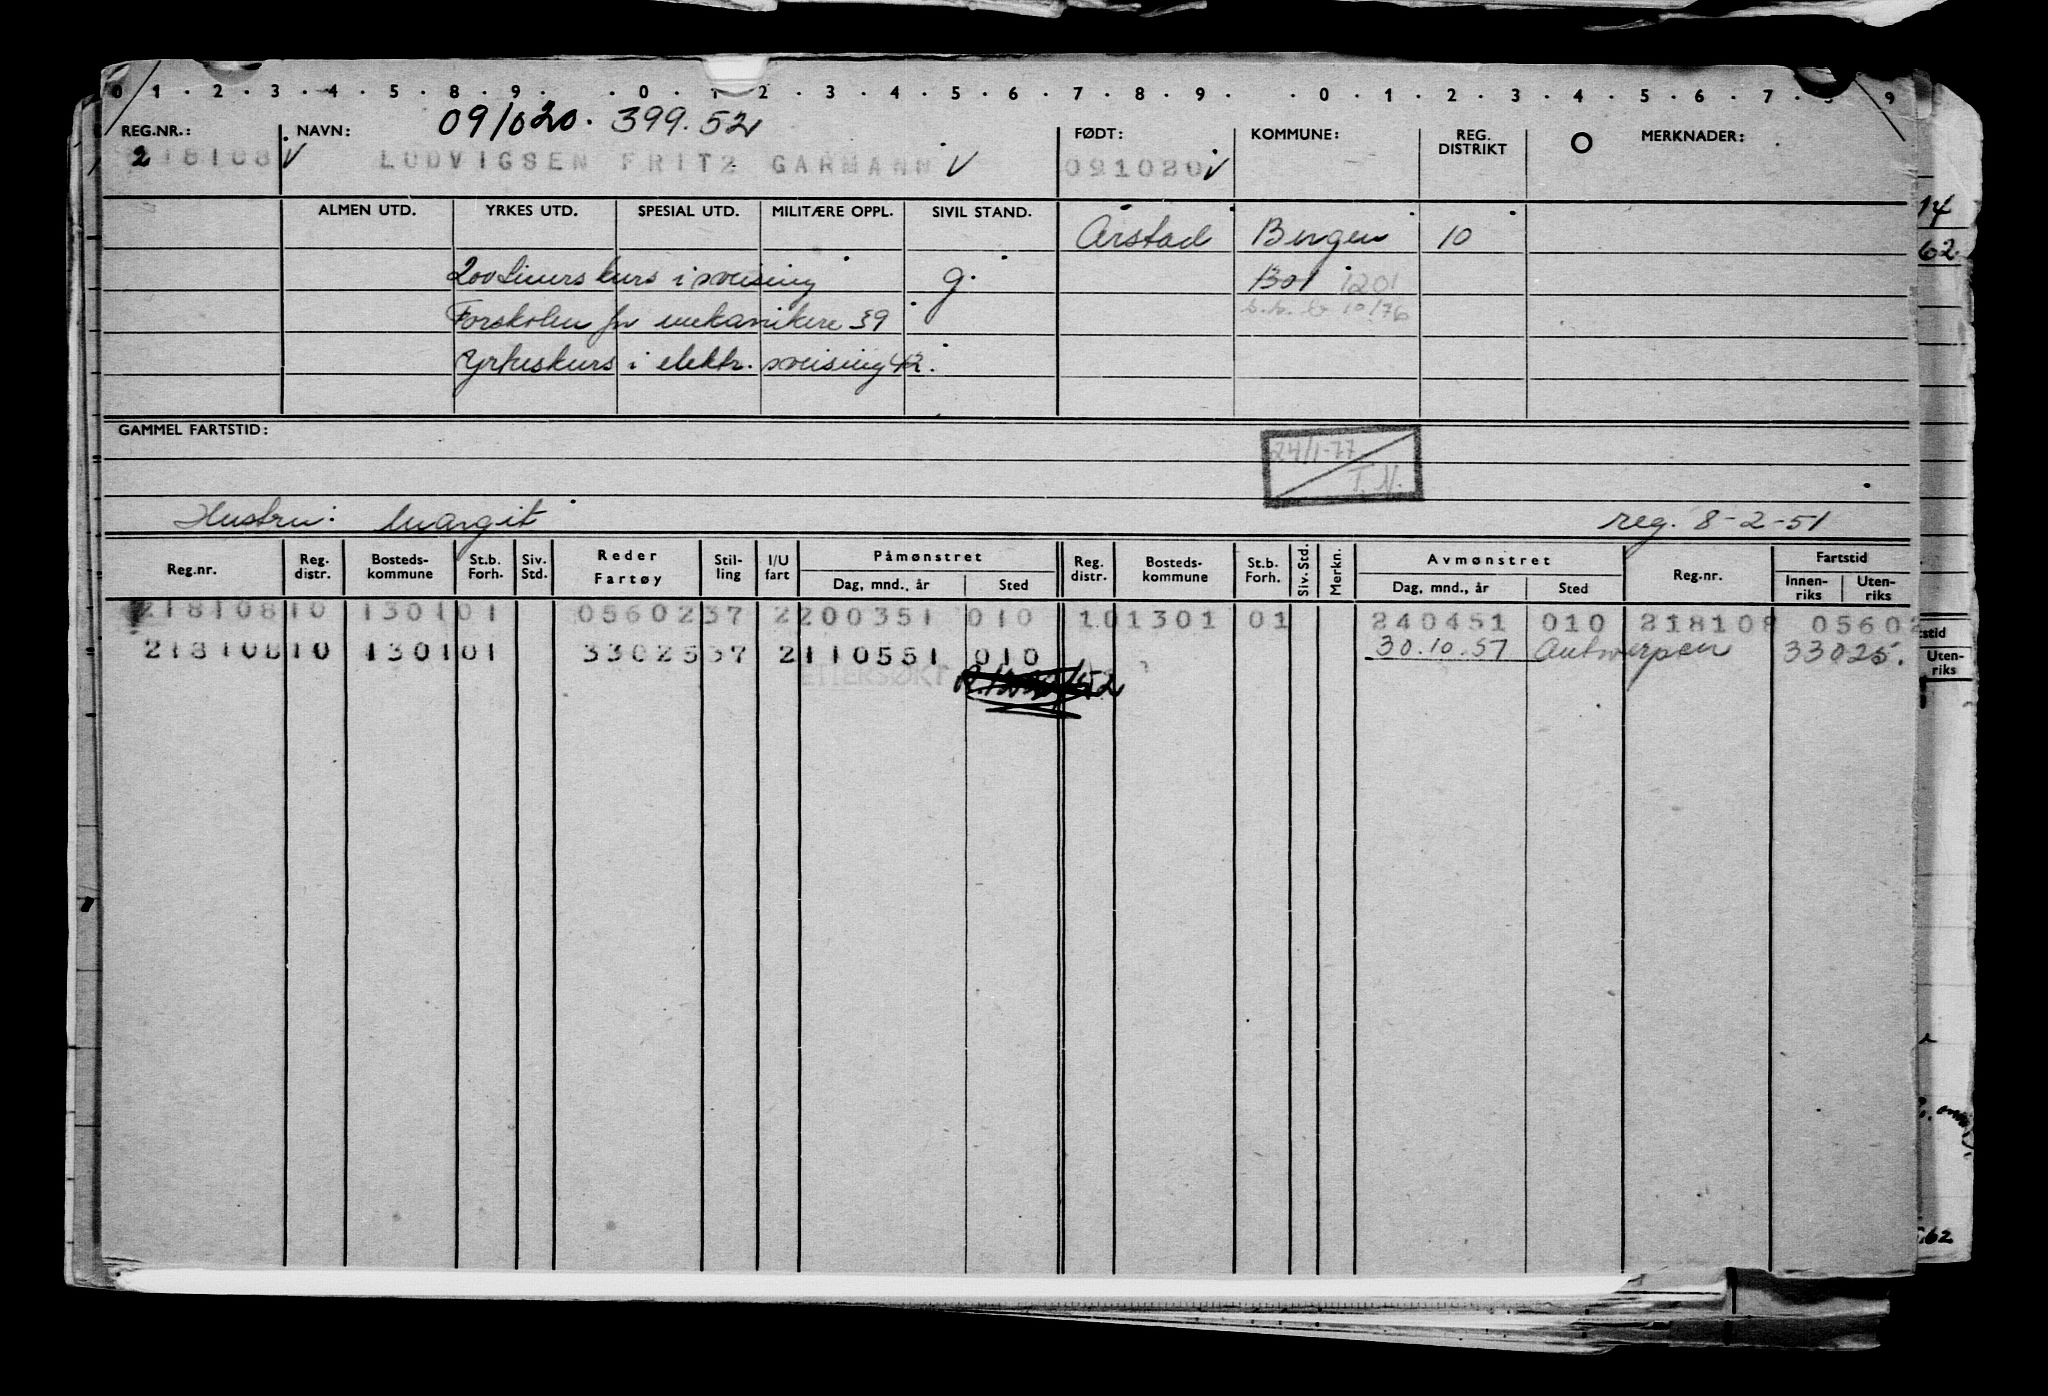 0 1 . 2 . 3 . 4 . 5 . 8 . 9 . . 0 . 1 . 2 . 3 . 4 . 5 . 6 . 7 . 8 . 9 . . 0 . 1 . 2 . 3 . 4 . 5 . 6 . 7 . 8 . 9
091020. 399.52
REG.NR.: NAVN: FØDT: KOMMUNE: REG. DISTRIKT O MERKNADER:
218108 V LUDVIGSEN FRITZ GARMANN V 091020 V
ALMEN UTD. YRKES UTD. SPESIAL UTD. MILITÆRE OPPL. SIVIL STAND.
Årstad Bergen 10
200 timers kurs i sveising g. 1301 1201
Forskolen for mekanikere 39 10/76
Yrkeskurs i elektr. sveising 42.
GAMMEL FARTSTID:
24/1-77
T.N.
Hustru: Margit reg. 8-2-51
Reg.nr. Reg. distr. Bosteds- kommune St.b. Forh. Siv. Std. Reder Fartøy Stil- ling I/U fart Påmønstret Reg. distr. Bosteds- kommune St.b. Forh. Siv. Std. Merkn. Avmønstret Reg.nr. Fartstid
Dag, mnd., år Sted Dag, mnd., år Sted Innen- riks Uten- riks
218108 10 1301 01 05602 37 2 200351 010 10 1301 01 240451 010 218108 05602
218108 10 1301 01 33025 37 2 110551 010 30.10.51 Antwerpen 33025.
ETTERSØKT
14
62
tstid
Uten- riks
62